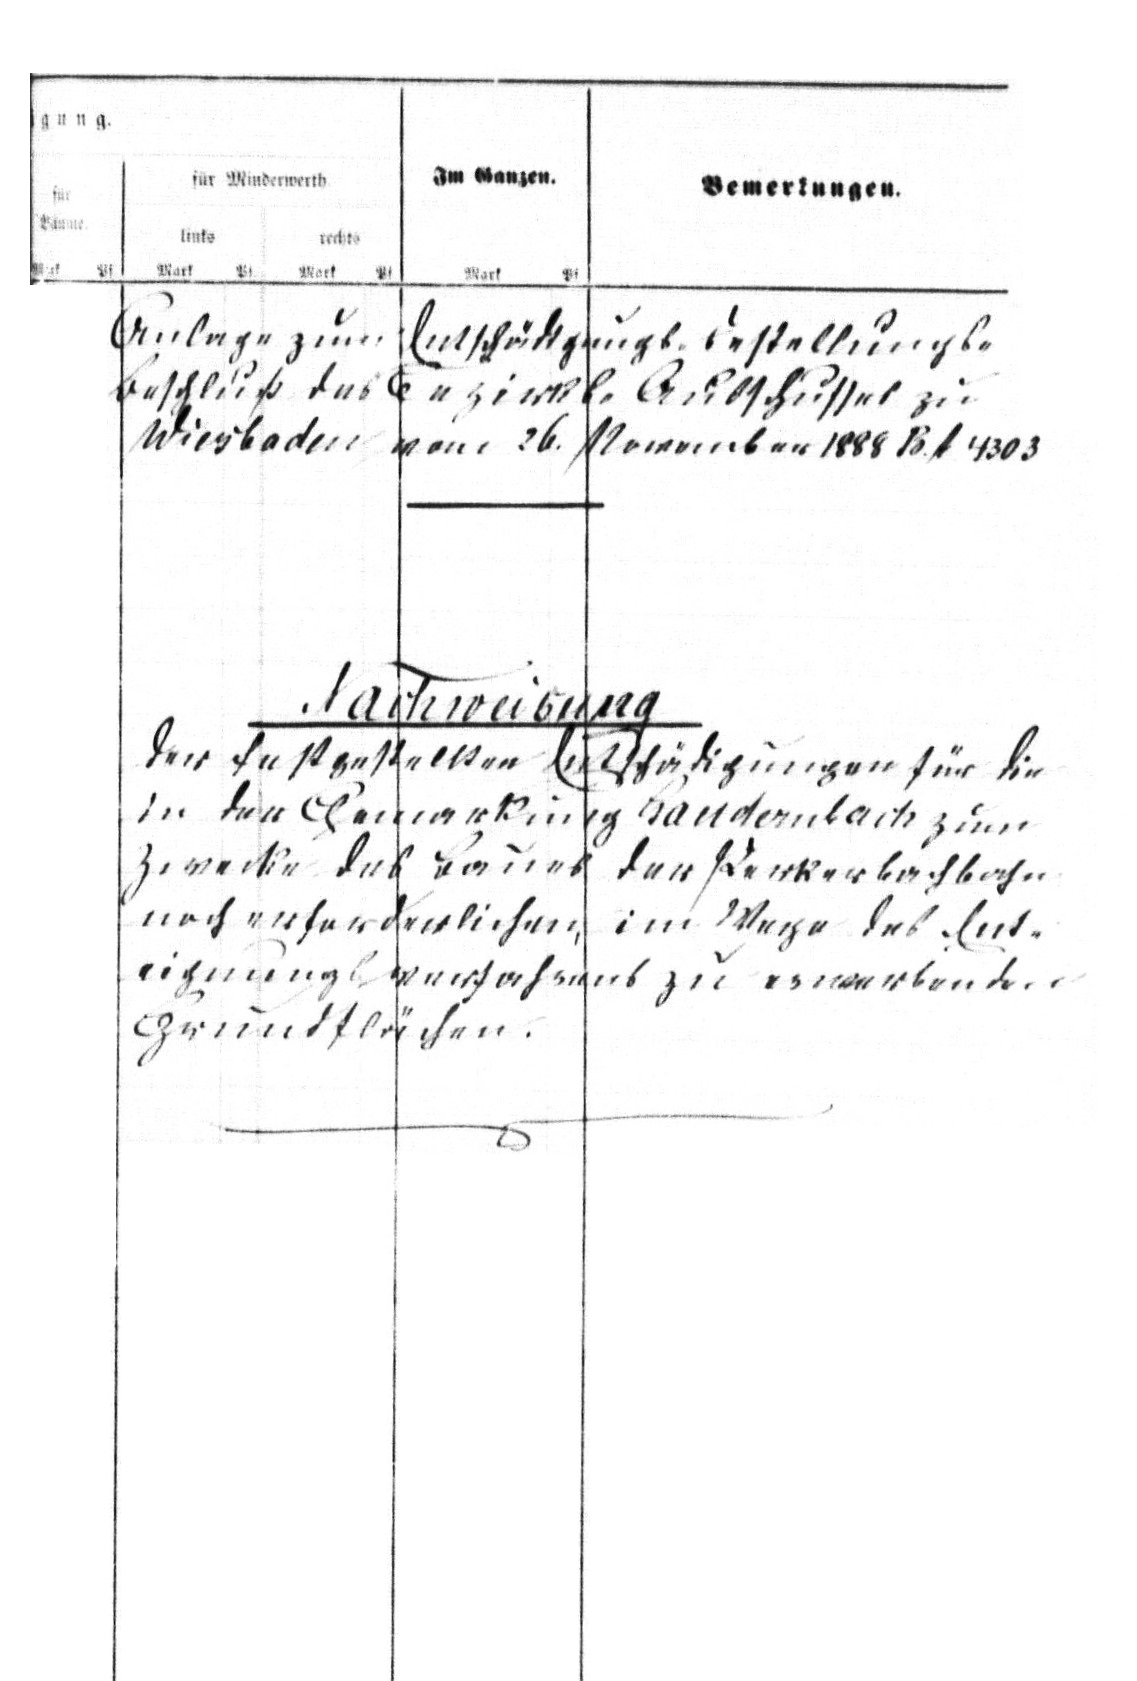 gung.
für Minderwerth
Im Ganzen.
Bemerkungen.
für
Bäume.
links
rechts
Mark Pf Mark Pf. Mark Pf Mark Pf
Anlage zum Entschädigungs-Feststellungs-
beschluß des Bezirks-Ausschusses zu
Wiesbaden vom 26. November 1888 B. A 4303
Nachweisung
der festgestellten Entschädigungen für die
in der Gemarkung Gaudernbach zum
Zwecke des Baues der Kerkerbachbahn
noch erforderlichen, im Wege des Ent-
eignungsverfahrens zu erwerbenden
Grundflächen.